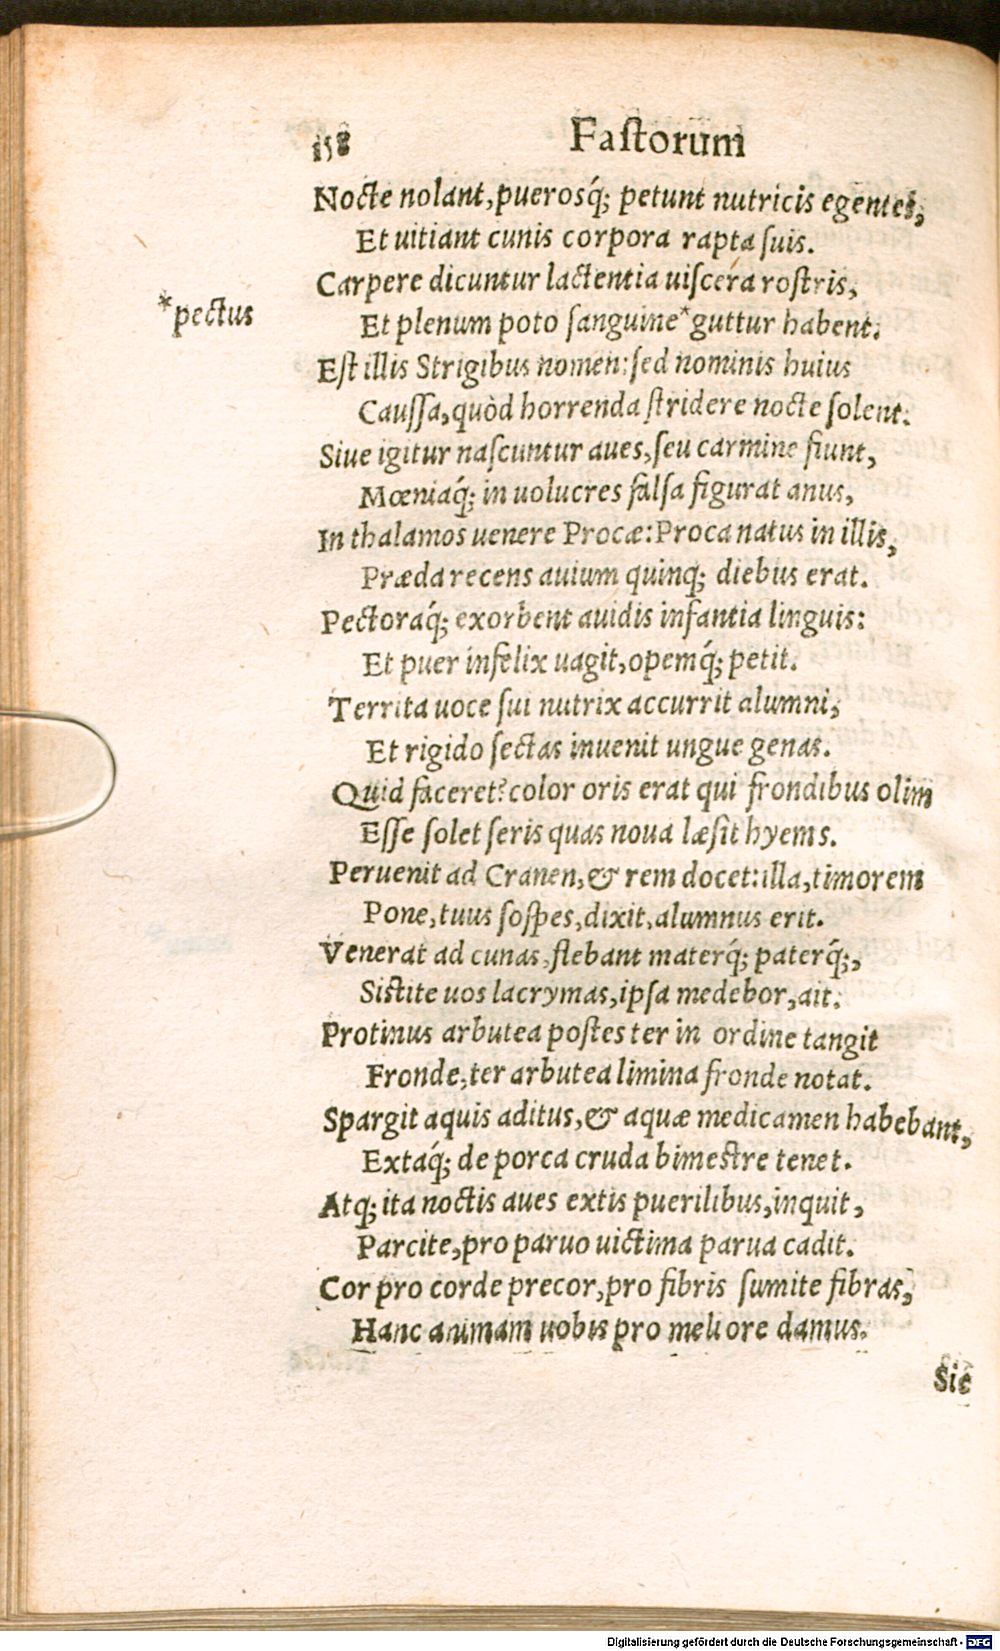 158 Fastorum
Nocte nolant, puerosq́; petunt nutricis egentes,
Et uitiant cunis corpora rapta suis.
Carpere dicuntur lactentia uiscera rostris,
*pectus
Et plenum poto sanguine*guttur habent.
Est illis Strigibus nomen: sed nominis huius
Caussa, quòd horrenda stridere nocte solent.
Siue igitur nascuntur aues, seu carmine fiunt,
Mœniaq́; in uolucres falsa figurat anus,
In thalamos uenere Procæ: Proca natus in illis,
Præda recens auium quinq; diebus erat.
Pectoraq́; exorbent auidis infantia linguis:
Et puer infelix uagit, opemq́; petit.
Territa uoce sui nutrix accurrit alumni,
Et rigido sectas inuenit ungue genas.
Quid faceret? color oris erat qui frondibus olim
Esse solet seris quas noua læsit hyems.
Peruenit ad Cranen, & rem docet: illa, timorem
Pone, tuus sospes, dixit, alumnus erit.
Venerat ad cunas, flebant materq́; paterq́;,
Sistite uos lacrymas, ipsa medebor, ait.
Protinus arbutea postes ter in ordine tangit
Fronde, ter arbutea limina fronde notat.
Spargit aquis aditus, & aquæ medicamen habebant,
Extaq́; de porca cruda bimestre tenet.
Atq; ita noctis aues extis puerilibus, inquit,
Parcite, pro paruo uictima parua cadit.
Cor pro corde precor, pro fibris sumite fibras,
Hanc animam uobis pro meliore damus.
Sic
Digitalisierung gefördert durch die Deutsche Forschungsgemeinschaft - DFG